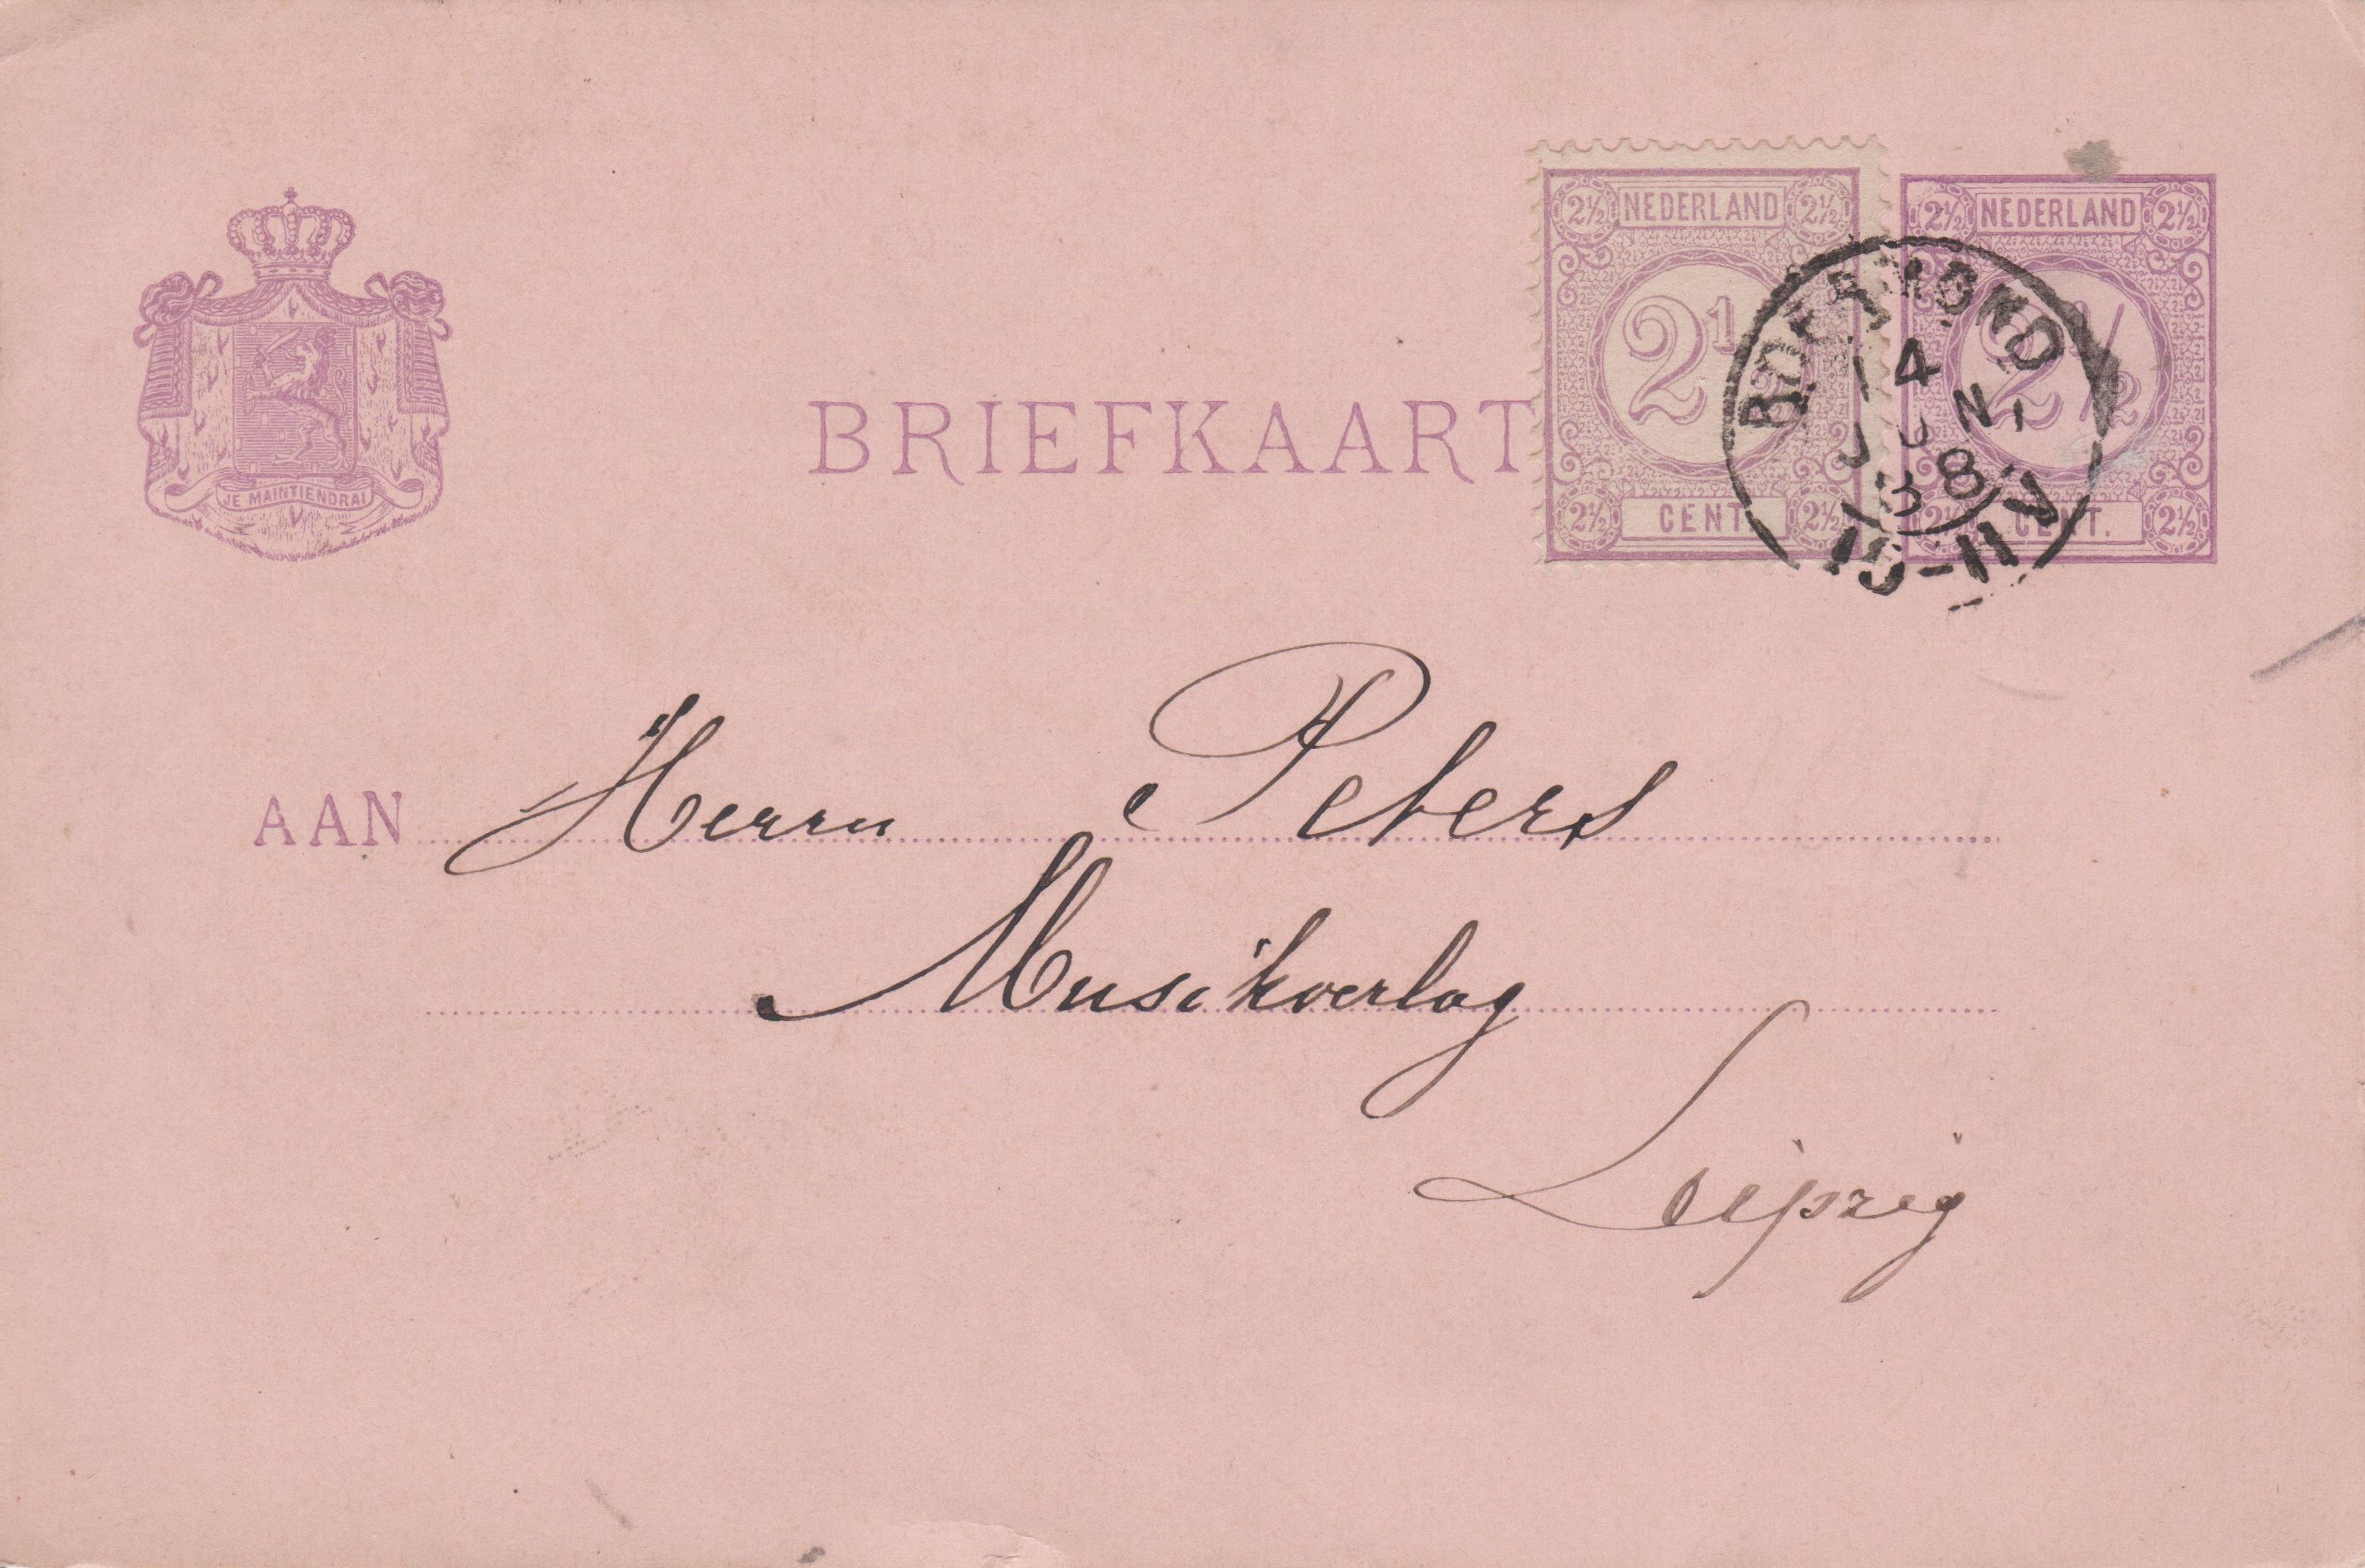 JE MAINTIENDRAI
BRIEFKAART
2½ NEDERLAND 2½
2½
2½ CENT 2½
2½ NEDERLAND 2½
2½
2½ CENT. 2½
ROERMOND
14
JUN
88
AAN Herrn Peters
Musikverlag
Leipzig